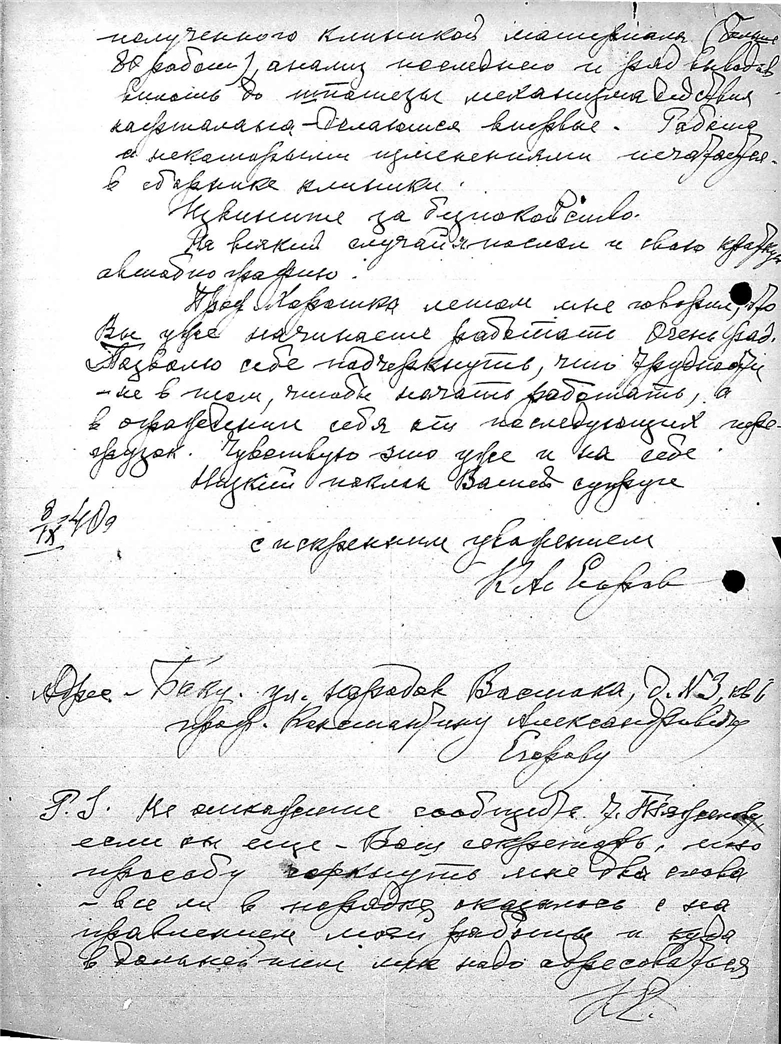 полученного клиникой материала (больше
80 работ), анализ последнего и ряд выводов
вплоть до гипотезы механизма действия
нафталана – делаются впервые. Работа
с некоторыми изменениями печатается
в сборнике клиники.
Извините за безпокойство.
На всякий случай я послал и свою кратк.
автобиографию.
Проф. Хорошко летом мне говорил, что
Вы уже начинаете работать. Очень рад.
Позволю себе подчеркнуть, что трудности
– не в том, чтобы начать работать, а
в ограждении себя от последующих пере-
грузок. Чувствую это уже и на себе.
Низкий поклон Вашей супруге
8/IX 40 г
с искренним уважением
К. А. Егоров
Адрес – Баку. ул. народов Востока, д. N3, кв 6
проф. Константину Александровичу
Егорову
P.S. Не откажите сообщить т.
если он еще – Ваш секретарь, мою
просьбу черкнуть мне два слова
– все ли в порядке оказалось с на
правлением моей работы и куда
в дальнейшем мне надо адресоваться
К Е.